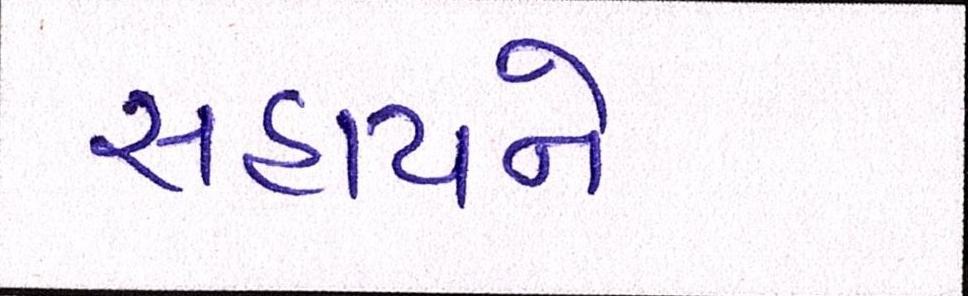 સહાયને